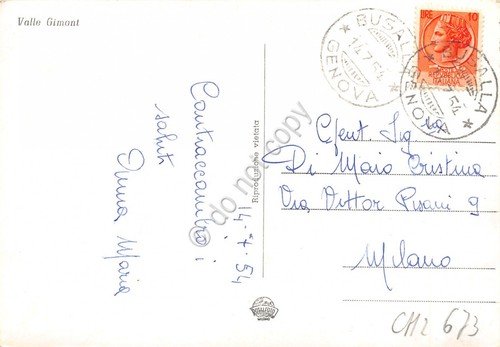 Valle Gimont
Contraccambio i
saluti
Anna Maria
14-7-54
Riproduzione vietata
BUSALLA
14.7.54
GENOVA
BUSALLA
7.54
GENOVA
LIRE 10
REPUBBLICA
ITALIANA
Gent. Sig.na
Di Maio Cristina
Via Vittor Pisani 9
Milano
CM2 673
© do not copy